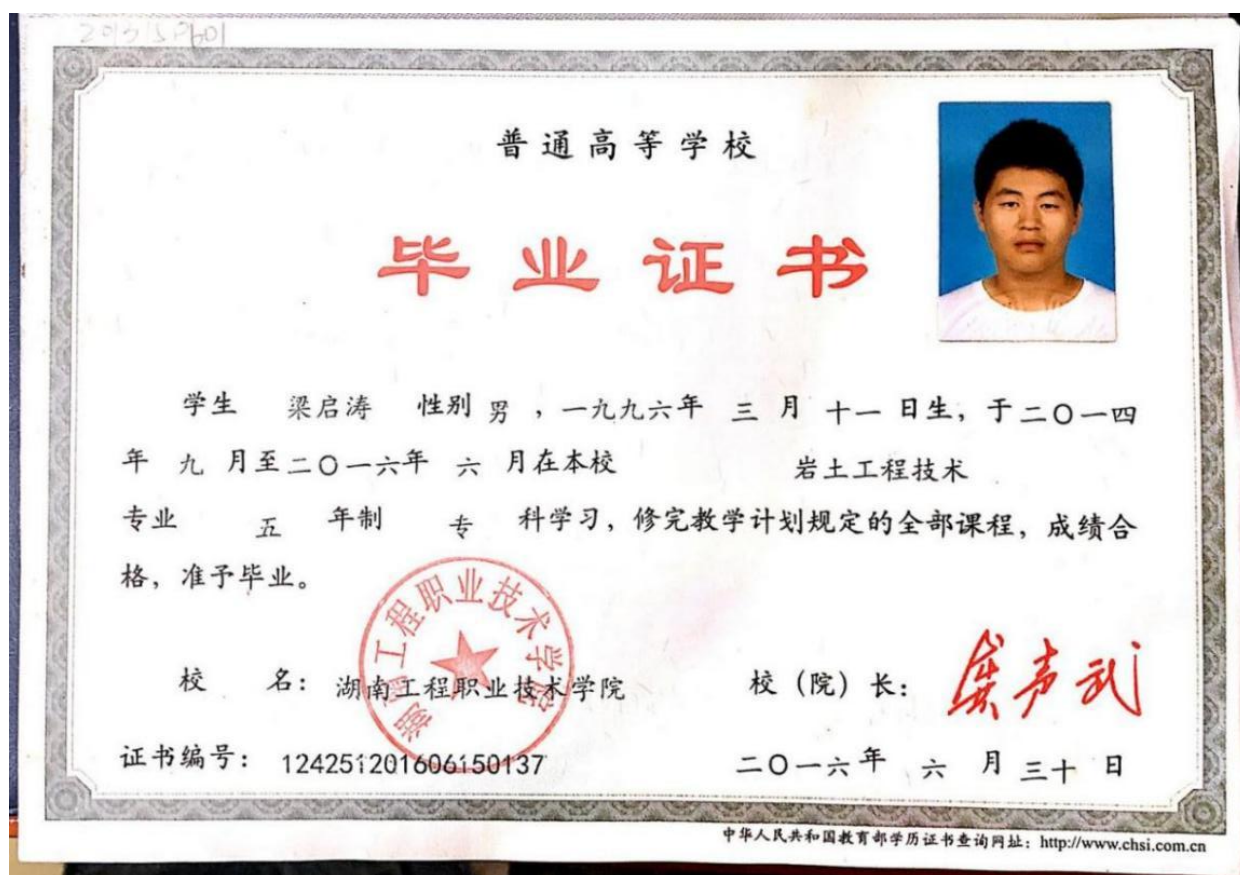 普通高等学校
毕业证书
学生 梁启涛 性别 男 ，一九九六年 三 月 十一 日生，于二〇一四
年 九 月至二〇一六年 六 月在本校 岩土工程技术
专业 五 年制 专 科学习，修完教学计划规定的全部课程，成绩合
格，准予毕业。
湖南工程职业技术学院
校 名：湖南工程职业技术学院 校（院）长：龚声武
证书编号：124251201606150137 二〇一六年 六 月 三十 日
中华人民共和国教育部学历证书查询网址：http://www.chsi.com.cn